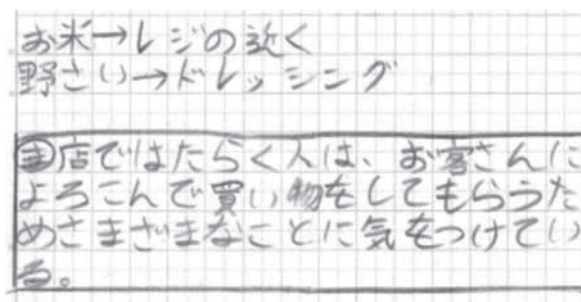 お米→レジの近く
野さい→ドレッシング
㋮店ではたらく人は、お客さんに
よろこんで買い物をしてもらうた
めさまざまなことに気をつけてい
る。